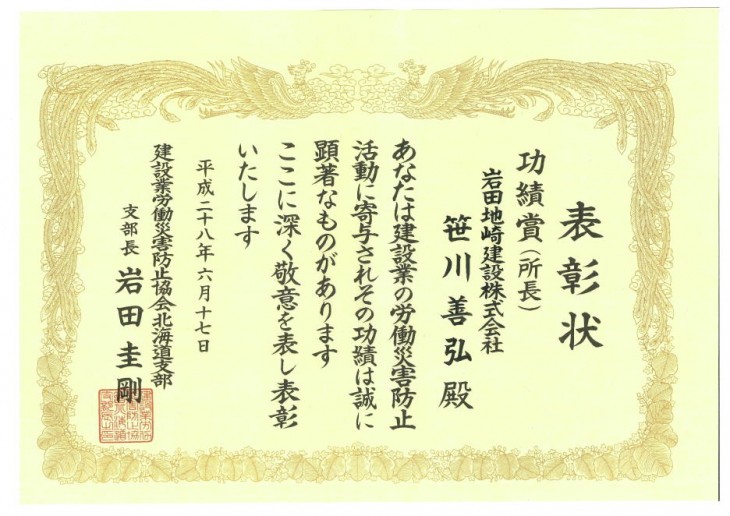 表彰状
功績賞（所長）
岩田地崎建設株式会社
笹川善弘殿
あなたは建設業の労働災害防止
活動に寄与されその功績は誠に
顕著なものがあります
ここに深く敬意を表し表彰
いたします
平成二十八年六月十七日
建設業労働災害防止協会北海道支部
支部長 岩田圭剛